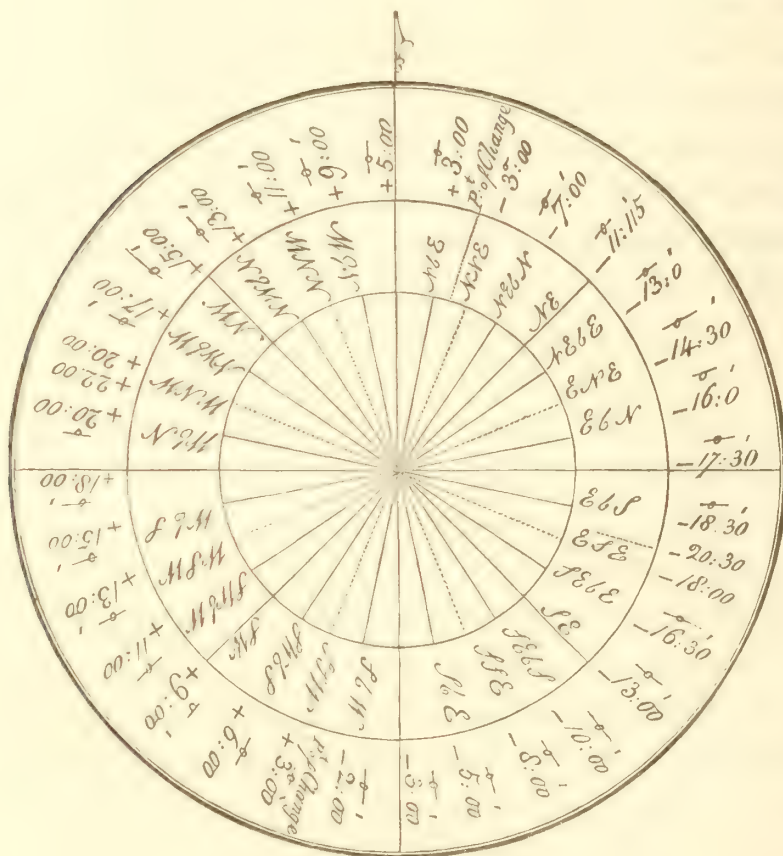 +3:00
Pt. of Change
-3:00
-7:00
-11:15
-13:0
-14:30
-16:0
-17:30
-18.30
-20:30
-18:00
-16:30
-13:00
-10:00
-8:00
-5:00
-3:00
-2:00
Pt. of Change
+3:00
+6:00
+9:00
+11:00
+13:00
+15:00
+18:00
+20:00
+22:00
+20:00
+17:00
+15:00
+13:00
+11:00
+9:00
+5:00
NbE
NNE
NEbN
NE
NEbE
ENE
EbN
EbS
ESE
SEbE
SE
SEbS
SSE
SbE
SbW
SSW
SWbS
SW
SWbW
WSW
WbS
WbN
WNW
NWbW
NW
NWbN
NNW
NbW